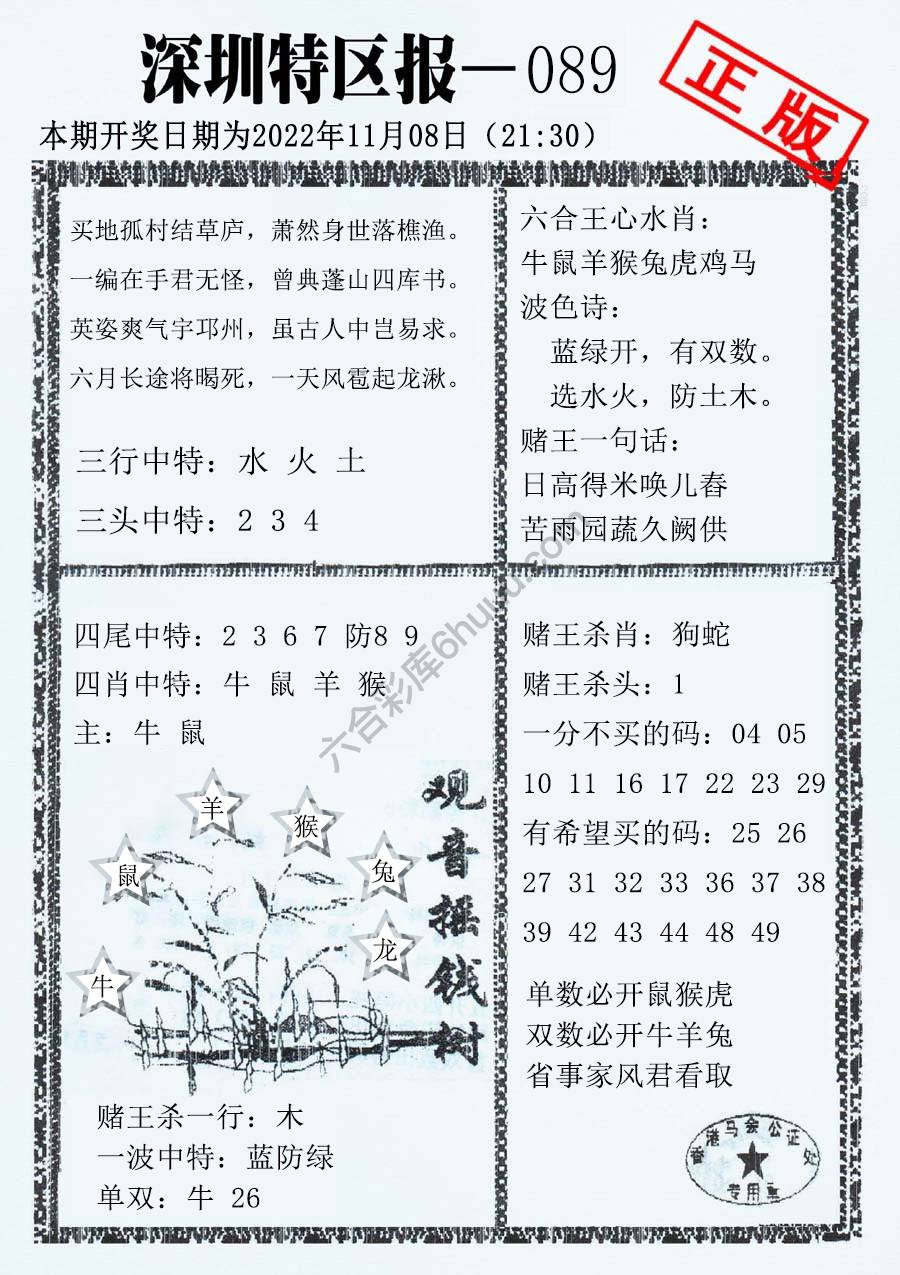 深圳特区报—089
正版
本期开奖日期为2022年11月08日（21:30）
买地孤村结草庐，萧然身世落樵渔。
一编在手君无怪，曾典蓬山四库书。
英姿爽气宇邛州，虽古人中岂易求。
六月长途将暍死，一天风雹起龙湫。
三行中特：水 火 土
三头中特：2 3 4
六合王心水肖：
牛鼠羊猴兔虎鸡马
波色诗：
蓝绿开，有双数。
选水火，防土木。
赌王一句话：
日高得米唤儿舂
苦雨园蔬久阙供
四尾中特：2 3 6 7 防8 9
四肖中特：牛 鼠 羊 猴
主：牛 鼠
羊
猴
鼠
兔
龙
牛
观音摇钱树
赌王杀一行：木
一波中特：蓝防绿
单双：牛 26
赌王杀肖：狗蛇
赌王杀头：1
一分不买的码：04 05
10 11 16 17 22 23 29
有希望买的码：25 26
27 31 32 33 36 37 38
39 42 43 44 48 49
单数必开鼠猴虎
双数必开牛羊兔
省事家风君看取
香港马会公证处
专用章
六合彩库6huuu.com